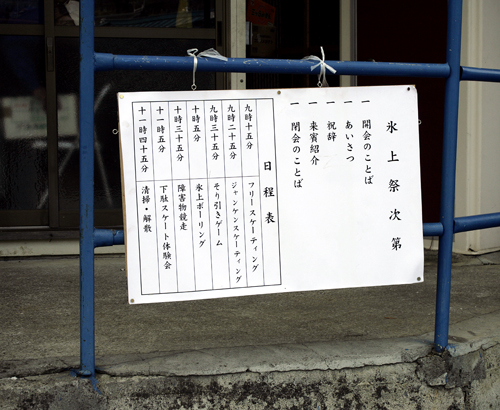 氷上祭次第
一 開会のことば
一 あいさつ
一 祝辞
一 来賓紹介
一 閉会のことば
日程表
九時十五分 フリースケーティング
九時二十五分 ジャンケンスケーティング
九時三十五分 そり引きゲーム
十時五分 氷上ボーリング
十時三十五分 障害物競走
十一時五分 下駄スケート体験会
十一時四十五分 清掃・解散